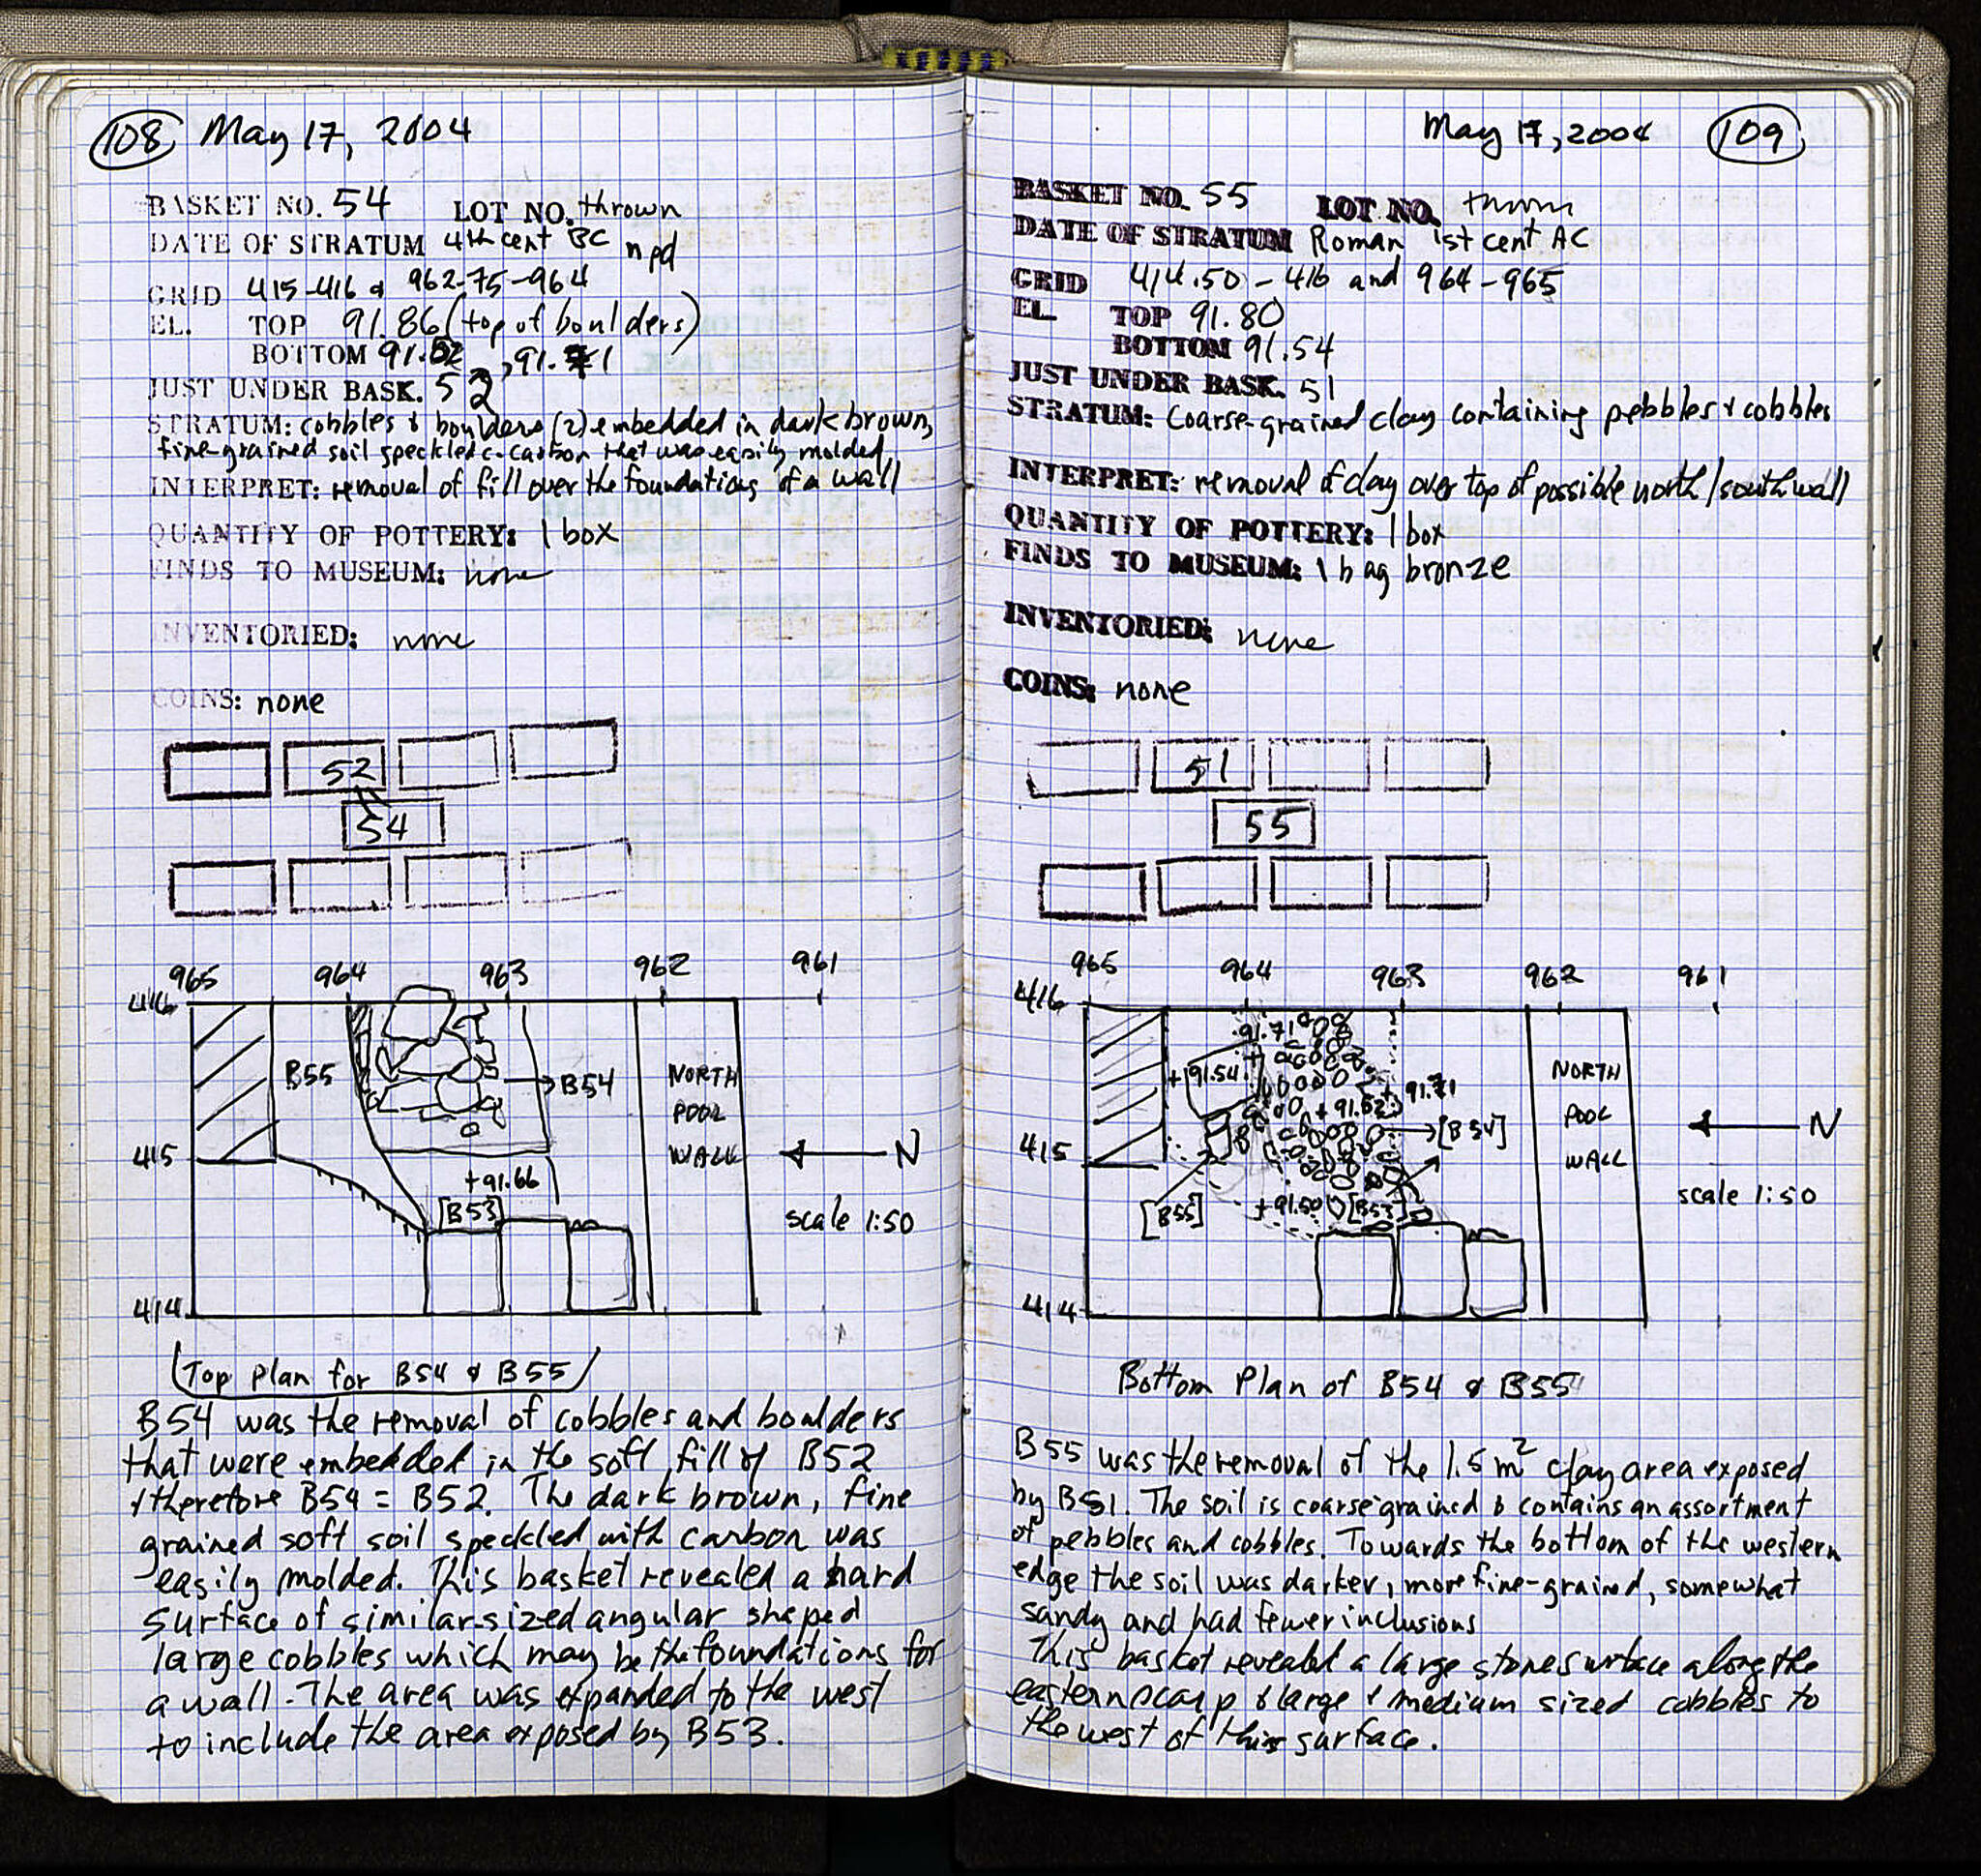 108 May 17, 2004
BASKET NO. 54 LOT NO. thrown
DATE OF STRATUM 4th cent BC npd
GRID 415-416 & 962-75-964
EL. TOP 91.86 (top of boulders)
BOTTOM 91.62, 91.71
JUST UNDER BASK. 52
STRATUM: cobbles & boulders (2) embedded in dark brown,
fine-grained soil speckled c. carbon that was easily molded
INTERPRET: removal of fill over the foundations of a wall
QUANTITY OF POTTERY: 1 box
FINDS TO MUSEUM: none
INVENTORIED: none
COINS: none
52
54
965 964 963 962 961
416
B55 B54 NORTH
POOL
415 WALL N
+91.66
[B53] scale 1:50
414
Top Plan for B54 & B55
B54 was the removal of cobbles and boulders
that were embedded in the soft fill of B52
& therefore B54 = B52. The dark brown, fine
grained soft soil speckled with carbon was
easily molded. This basket revealed a hard
surface of similar-sized angular shaped
large cobbles which may be the foundations for
a wall. The area was expanded to the west
to include the area exposed by B53.
May 17, 2004 109
BASKET NO. 55 LOT NO. thrown
DATE OF STRATUM Roman 1st cent AC
GRID 414.50-416 and 964-965
EL. TOP 91.80
BOTTOM 91.54
JUST UNDER BASK. 51
STRATUM: Coarse-grained clay containing pebbles & cobbles
INTERPRET: removal of clay over top of possible north/south wall
QUANTITY OF POTTERY: 1 box
FINDS TO MUSEUM: 1 bag bronze
INVENTORIED: none
COINS: none
51
55
965 964 963 962 961
416
91.71
+91.54 91.71 NORTH
+91.62 POOL
415 [B54] WALL N
[B55] +91.50 [B53] scale 1:50
414
Bottom Plan of B54 & B55
B55 was the removal of the 1.5 m² clay area exposed
by B51. The soil is coarse grained & contains an assortment
of pebbles and cobbles. Towards the bottom of the western
edge the soil was darker, more fine-grained, somewhat
sandy and had fewer inclusions
This basket revealed a large stone surface along the
eastern scarp & large & medium sized cobbles to
the west of this surface.